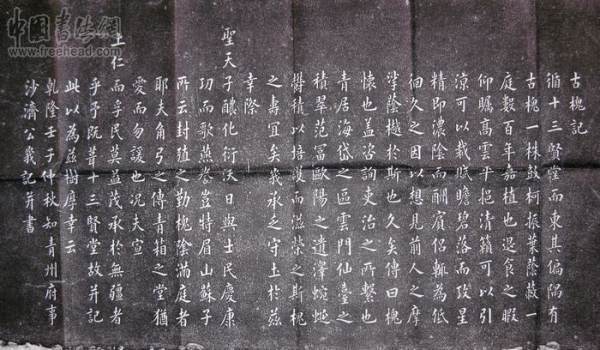 古槐記
循十三賢堂而東其偏隅有
古槐一株鼓柯振葉蔭蔽一
庭數百年嘉植也退食之暇
仰矚高雲平挹清籟可以引
涼可以裁賦瞻碧落而致星
精即濃陰而酬賓侶輒為低
徊久之因以想見前人之摩
挲蔭樾於斯也久矣傳曰槐
懷也蓋咨詢吏治之所繫也
青居海岱之區雲門仙臺之
積翠范富歐陽之遺澤蜿蜒
欝積以培護而滋榮之斯槐
之壽宜矣我承乏守土於茲
幸際
聖天子醲化衍沃日與士民慶康
功而歌燕譽豈特眉山蘇子
所云封殖之勤槐陰滿庭者
耶夫角弓之傳青箱之堂猶
愛而勿諼也況夫宣
上仁而孚民莫益茂承於無疆者
乎予既葺十三賢堂故并記
此以為茲樹厚幸云
乾隆壬子仲秋知青州府事
沙濟公峩記并書
中國書法網
www.freehead.com